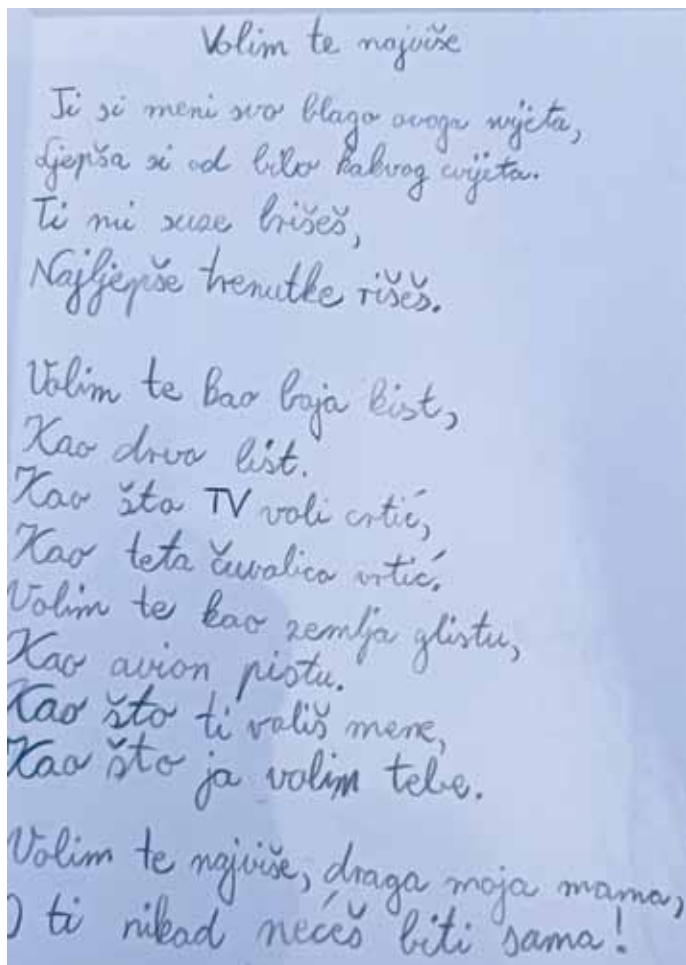 Volim te najviše
Ti si meni svo blago ovoga svijeta,
Ljepša si od bilo kakvog cvijeta.
Ti mi suze brišeš,
Najljepše trenutke rišeš.
Volim te kao boja kist,
Kao drvo list.
Kao što TV voli crtić,
Kao teta čuvalica vrtić.
Volim te kao zemlja glistu,
Kao avion pistu.
Kao što ti voliš mene,
Kao što ja volim tebe.
Volim te najviše, draga moja mama,
ti nikad nećeš biti sama!